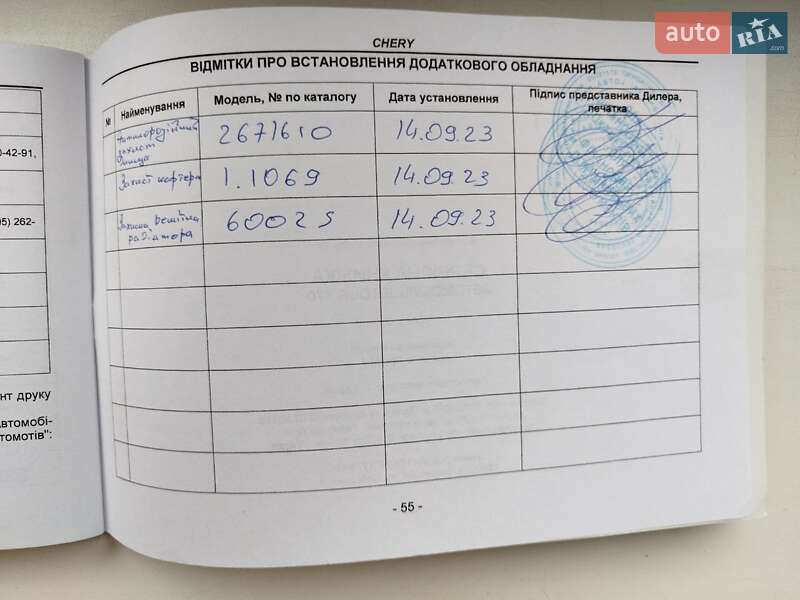 auto RIA .com
CHERY
ВІДМІТКИ ПРО ВСТАНОВЛЕННЯ ДОДАТКОВОГО ОБЛАДНАННЯ
№ Найменування Модель, № по каталогу Дата установлення Підпис представника Дилера, печатка
захист 2671610 14.09.23
Захист картера 1.1069 14.09.23
Захисна решітка радіатора 6002S 14.09.23
0-42-91,
95) 262-
нт друку
Автомобі-
томотів":
- 55 -